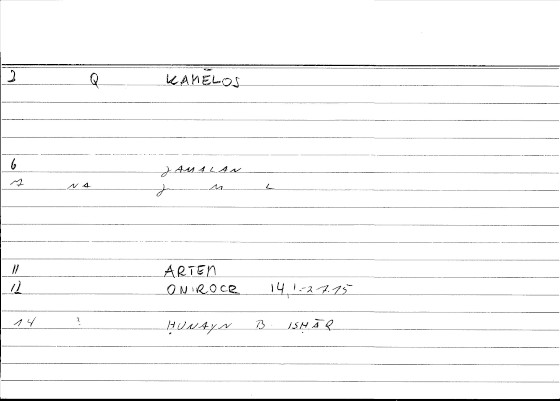 2 Q KAMĒLOS
6 ǦAMALAN
7 NA Ǧ M L
11 ARTEM
12 ONIROCR 14,1-2 7.15
14 : ḤUNAYN B ISḤĀQ